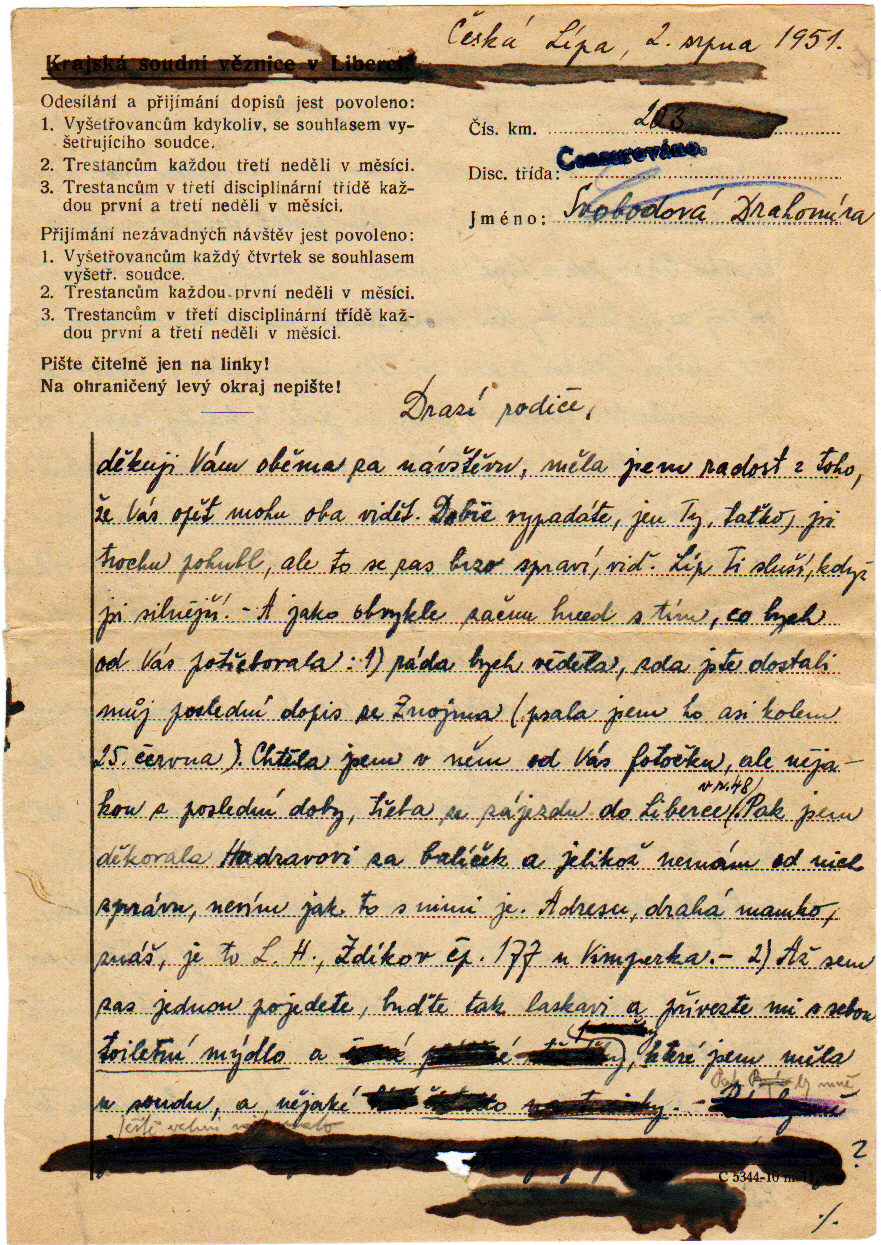 Česká Lípa, 2. srpna 1951.
Krajská soudní věznice v Liberci.
Odesílání a přijímání dopisů jest povoleno:
1. Vyšetřovancům kdykoliv, se souhlasem vy-
šetřujícího soudce.
2. Trestancům každou třetí neděli v měsíci.
3. Trestancům v třetí disciplinární třídě kaž-
dou první a třetí neděli v měsíci.
Přijímání nezávadných návštěv jest povoleno:
1. Vyšetřovancům každý čtvrtek se souhlasem
vyšetř. soudce.
2. Trestancům každou první neděli v měsíci.
3. Trestancům v třetí disciplinární třídě kaž-
dou první a třetí neděli v měsíci.
Pište čitelně jen na linky!
Na ohraničený levý okraj nepište!
Čís. km. 203
Censurováno.
Disc. třída:
Jméno: Svobodová Drahomíra
Drazí rodiče,
děkuji Vám oběma za návštěvu, měla jsem radost z toho,
že Vás opět mohu oba vidět. Dobře vypadáte, jen Ty, taťko, jsi
trochu pohubl, ale to se zas brzo spraví, viď. Líp Ti sluší, když
jsi silnější. - A jako obvykle začnu hned s tím, co bych
od Vás potřebovala: 1) ráda bych věděla, zda jste dostali
můj poslední dopis ze Znojma (psala jsem ho asi kolem
25. června). Chtěla jsem v něm od Vás fotočku, ale něja-
kou z poslední doby, třeba ze zájezdu do Liberce (v r. 48). Pak jsem
děkovala Hadravovi za balíček a jelikož nemám od nich
zprávu, nevím jak to s nimi je. Adresu, drahá mamko,
znáš, je to L. H., Zdíkov čp. 177 u Vimperka. - 2) Až sem
zas jednou pojedete, buďte tak laskavi a přivezte mi s sebou
toiletní mýdlo a které jsem měla
u soudu, a nějaké
ještě velmi
C 5344-10
?
./.